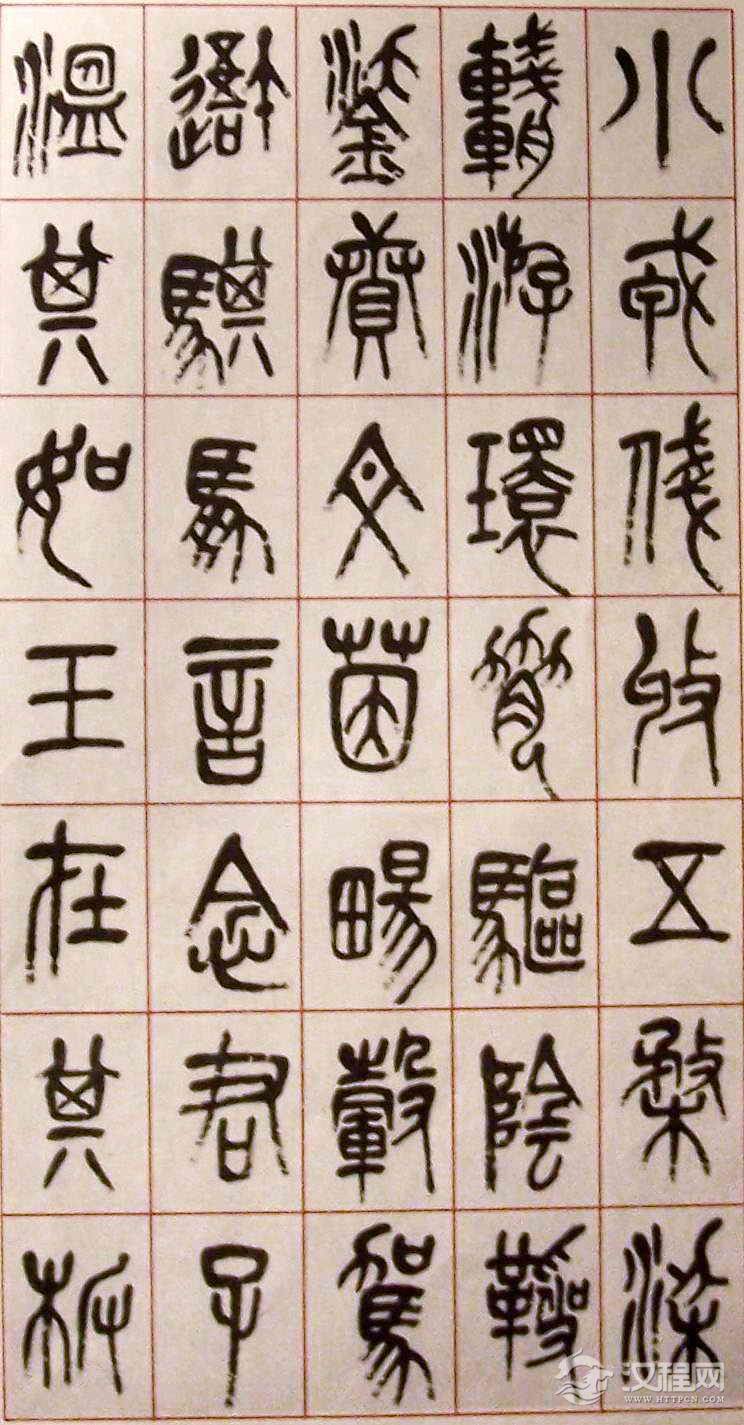 小戎俴收五楘梁
輈游環脅驅陰靷
鋈賡文茵畼轂駕
騏馵言念君子
溫其如玉在其板
汉程网
WWW.HTTPCN.COM